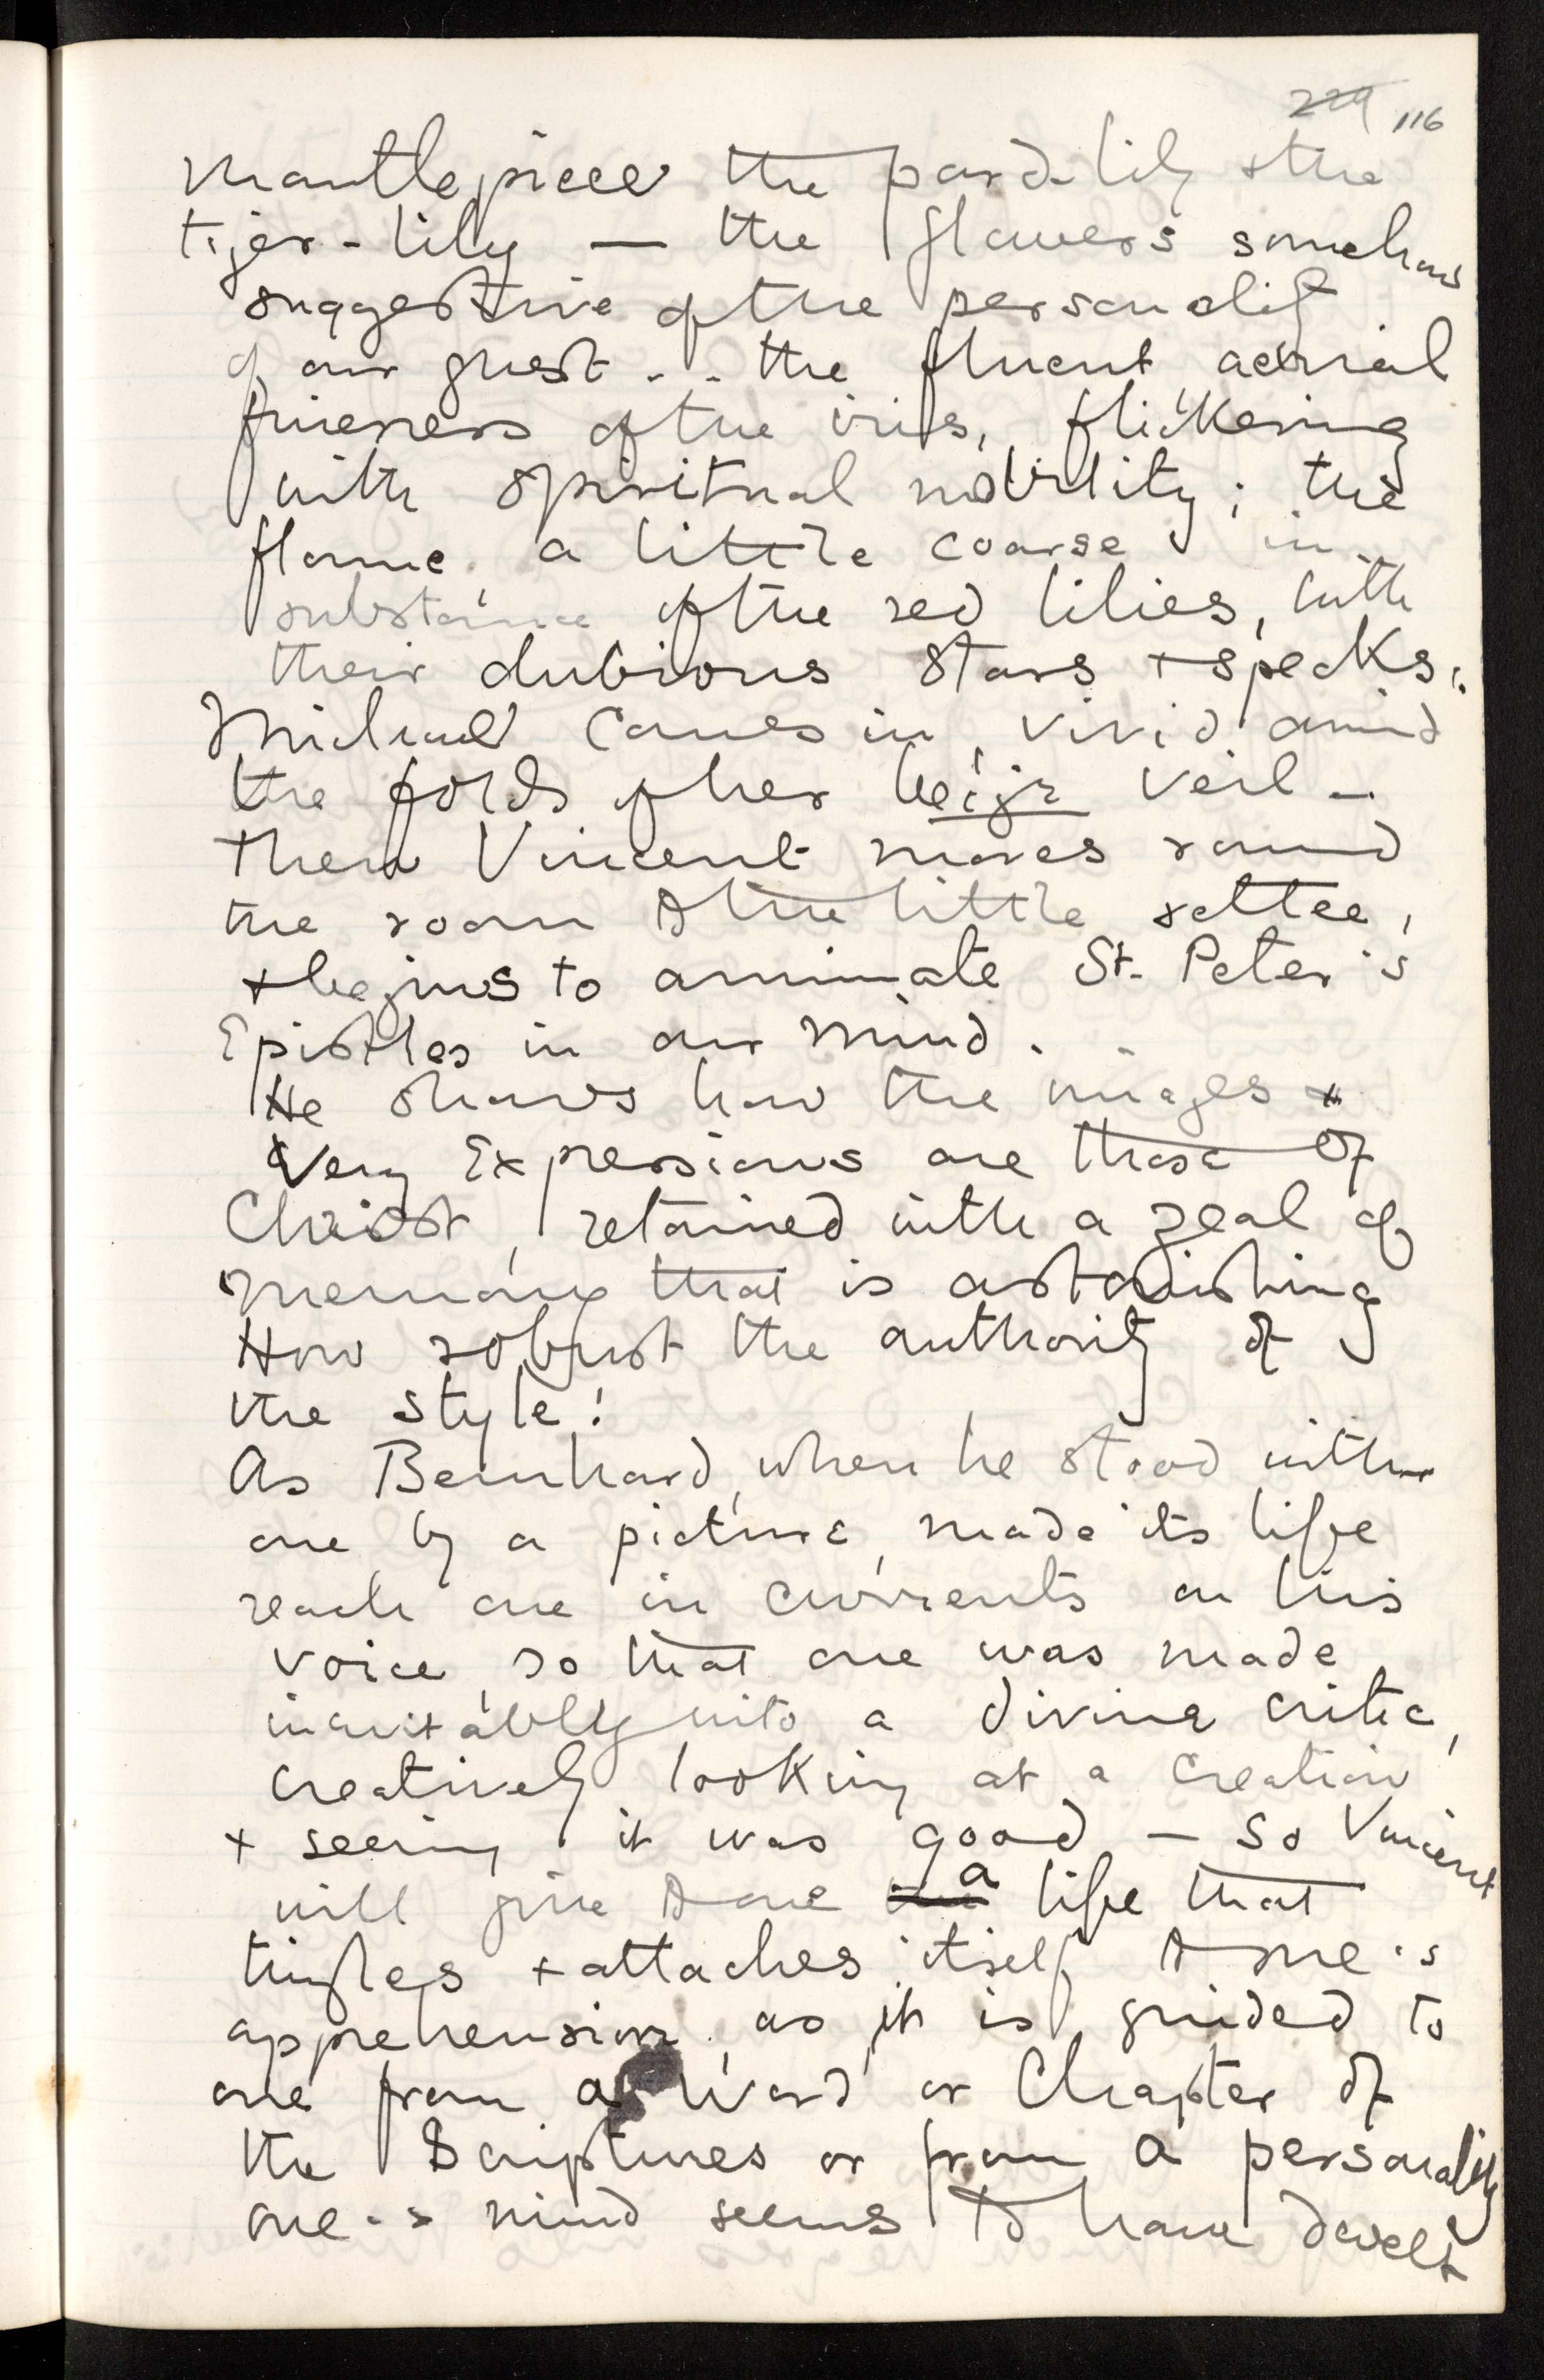 229 116
mantlepiece the pard-lily & the
tiger-lily — the flowers somehow
suggestive of the personality
of our guest . . the fluent aerial
fineness of the iris, flickering
with spiritual nobility; the
flame, a little coarse in
substance of the red lilies, with
their dubious stars & specks.
Michael comes in, vivid amid
the folds of her beige veil —
Then Vincent moves round
the room to the little settee,
& begins to animate St. Peter's
Epistles in our mind.
He shows how the images &
very Expressions are those of
Christ, retained with a zeal of
memory that is astonishing
How robust the authority of
the style!
As Bernhard, when he stood with
one by a picture, made its life
reach one in currents on his
voice, so that one was made
inevitably into a divine critic,
creatively looking at a creation
& seeing it was good — so Vincent
will give to one a life that
tingles & attaches itself to one's
apprehension, as it is guided to
one from a Word or Chapter of
the Scriptures or from a personality
one's mind seems to have dwelt